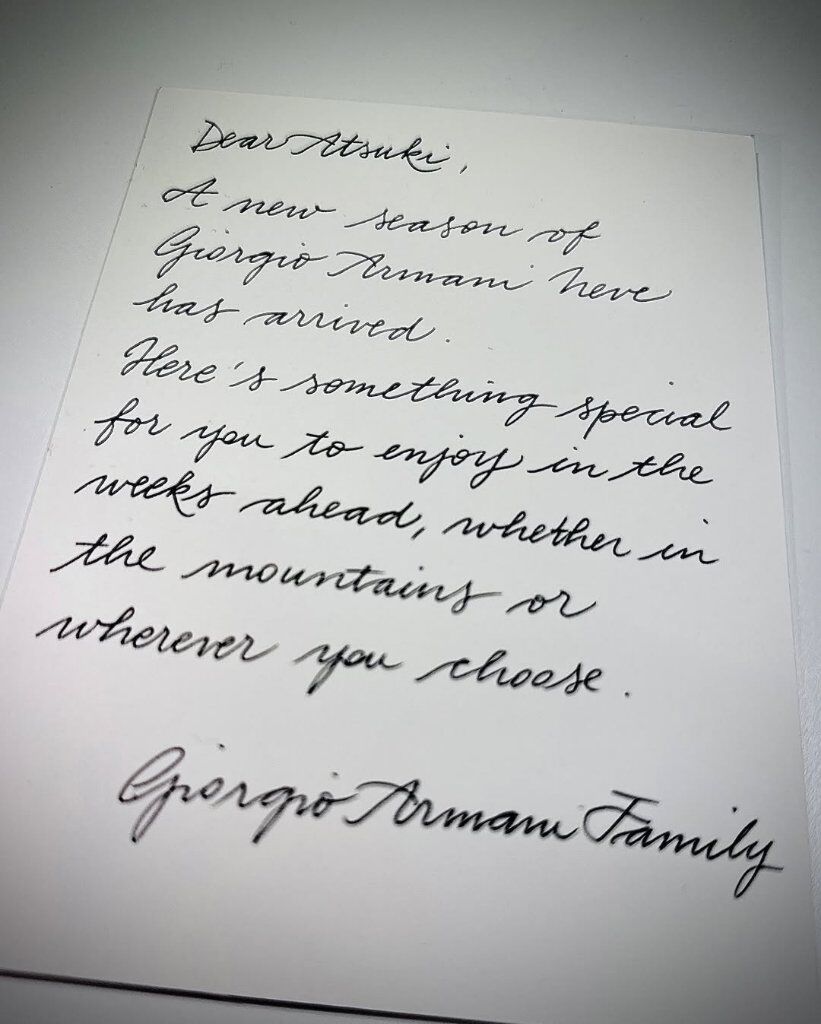 Dear Atsuki,
A new season of
Giorgio Armani Neve
has arrived.
Here's something special
for you to enjoy in the
weeks ahead, whether in
the mountains or
wherever you choose.
Giorgio Armani Family